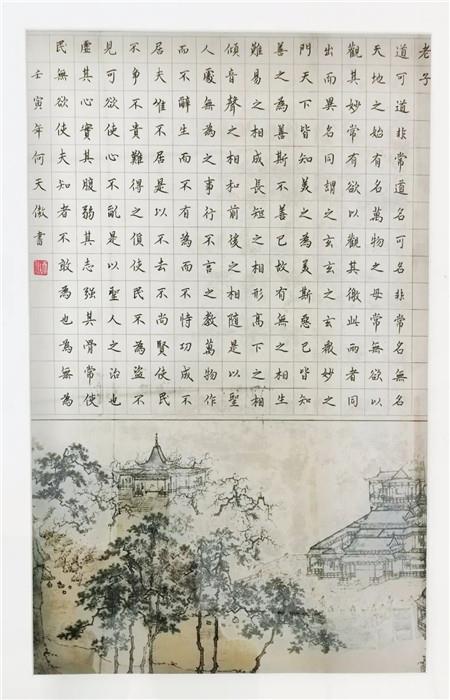 老子
道可道非常道名可名非常名無名
天地之始有名萬物之母常無欲以
觀其妙常有欲以觀其徼此兩者同
出而異名同謂之玄之又玄衆妙之
門天下皆知美之為美斯惡已皆知
善之為善斯不善已故有無之相生
難易之相成長短之相形高下之相
傾音聲之相和前後之相隨是以聖
人處無為之事行不言之教萬物作
而不辭生而不有為而不恃功成不
居夫唯不居是以不去不尚賢使民
不爭不貴難得之貨使民不為盜不
見可欲使心不亂是以聖人之治也
虛其心實其腹弱其志强其骨常使
民無欲使夫知者不敢為也為無為
壬寅年何天傲書